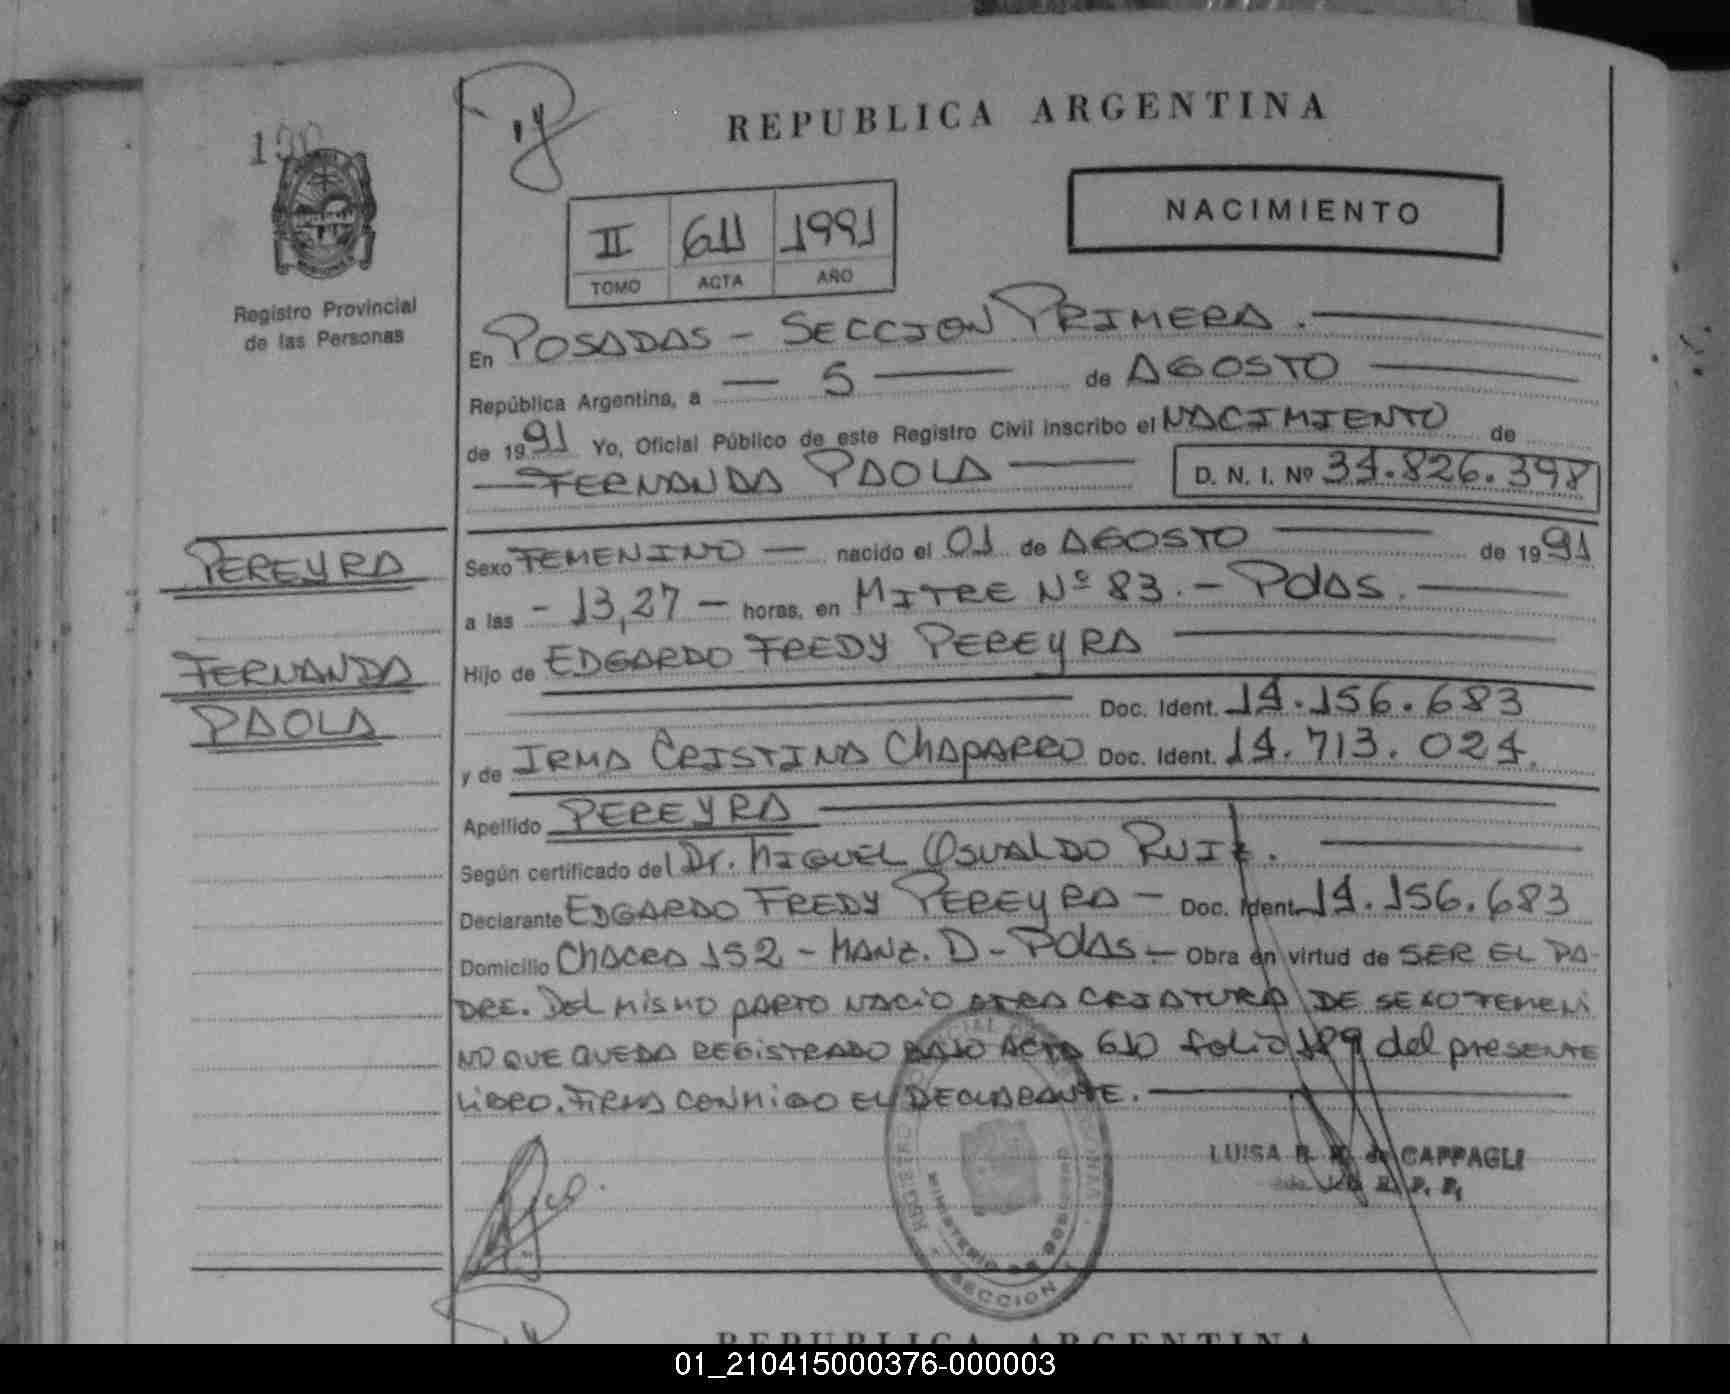 190
REPUBLICA ARGENTINA
NACIMIENTO
II 611 1991
TOMO ACTA AÑO
Registro Provincial
de las Personas
En POSADAS - SECCION PRIMERA.
República Argentina, a — 5 — de AGOSTO
de 1991 Yo, Oficial Público de este Registro Civil inscribo el NACIMIENTO de
FERNANDA PAOLA — D. N. I. Nº 34.826.398
PEREYRA
FERNANDA
PAOLA
Sexo FEMENINO — nacido el 01 de AGOSTO — de 1991
a las - 13,27 - horas, en MITRE Nº 83.- Pdas.
Hijo de EDGARDO FREDY PEREYRA
Doc. Ident. 14.156.683
y de IRMA CRISTINA CHAPARRO Doc. Ident. 14.713.024.
Apellido PEREYRA
Según certificado del Dr. MIGUEL OSVALDO RUIZ.
Declarante EDGARDO FREDY PEREYRA - Doc. Ident. 14.156.683
Domicilio CHACRA 152 - MANZ. D - Pdas - Obra en virtud de SER EL PA-
DRE. Del mismo parto nacio otra criatura DE SEXO FEMENI
NO QUE QUEDA REGISTRADO BAJO ACTA 610 folio 189 del presente
LIBRO. FIRMA CONMIGO EL DECLARANTE.
LUISA de CAPPAGLI
MINISTERIO DE GOBIERNO
SECCION 1
REPUBLICA ARGENTINA
01_210415000376-000003